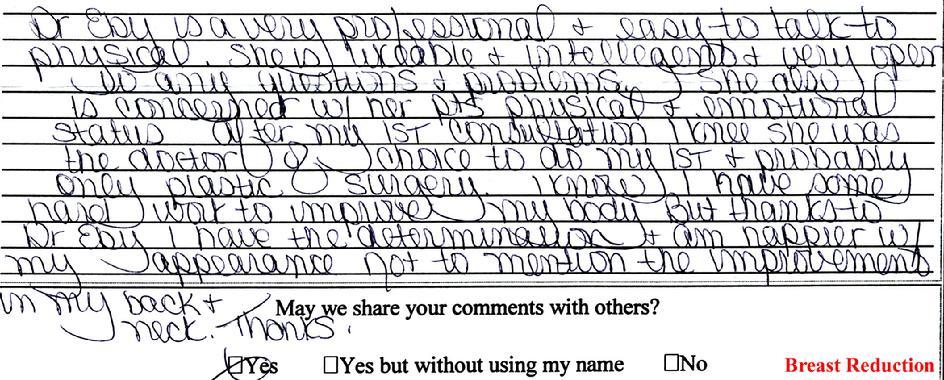 Dr Eby is a very professional + easy to talk to
physical. She is likeable + intellegent + very open
to any questions & problems. She also
is concerned w/ her pts physical + emotional
status After my 1ST consultation I knee she was
the doctor of choice to do my 1ST + probably
only plastic surgery. I know I have some
hard work to improve my body But thanks to
Dr Eby I have the determination + am happier w/
my appearance not to mention the improvement
in my back +
neck. Thanks.
May we share your comments with others?
☒Yes ☐Yes but without using my name ☐No
Breast Reduction